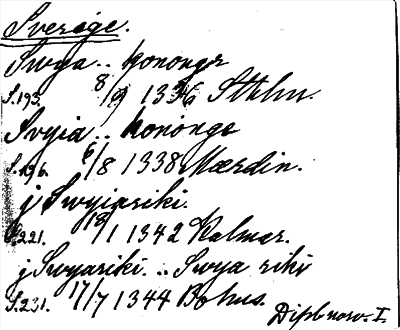 Sverige.
Swya .. konongr
S. 193. 8/9 1336 Sthlm.
Svyia .. konongs
S. 196. 6/8 1338 Mærdin.
j Swyiariki.
S. 221. 18/1 1342 Kalmar.
j Swyariki. .. Swya riki
S. 231. 17/7 1344 Bohus.
Dipl. norv. I.